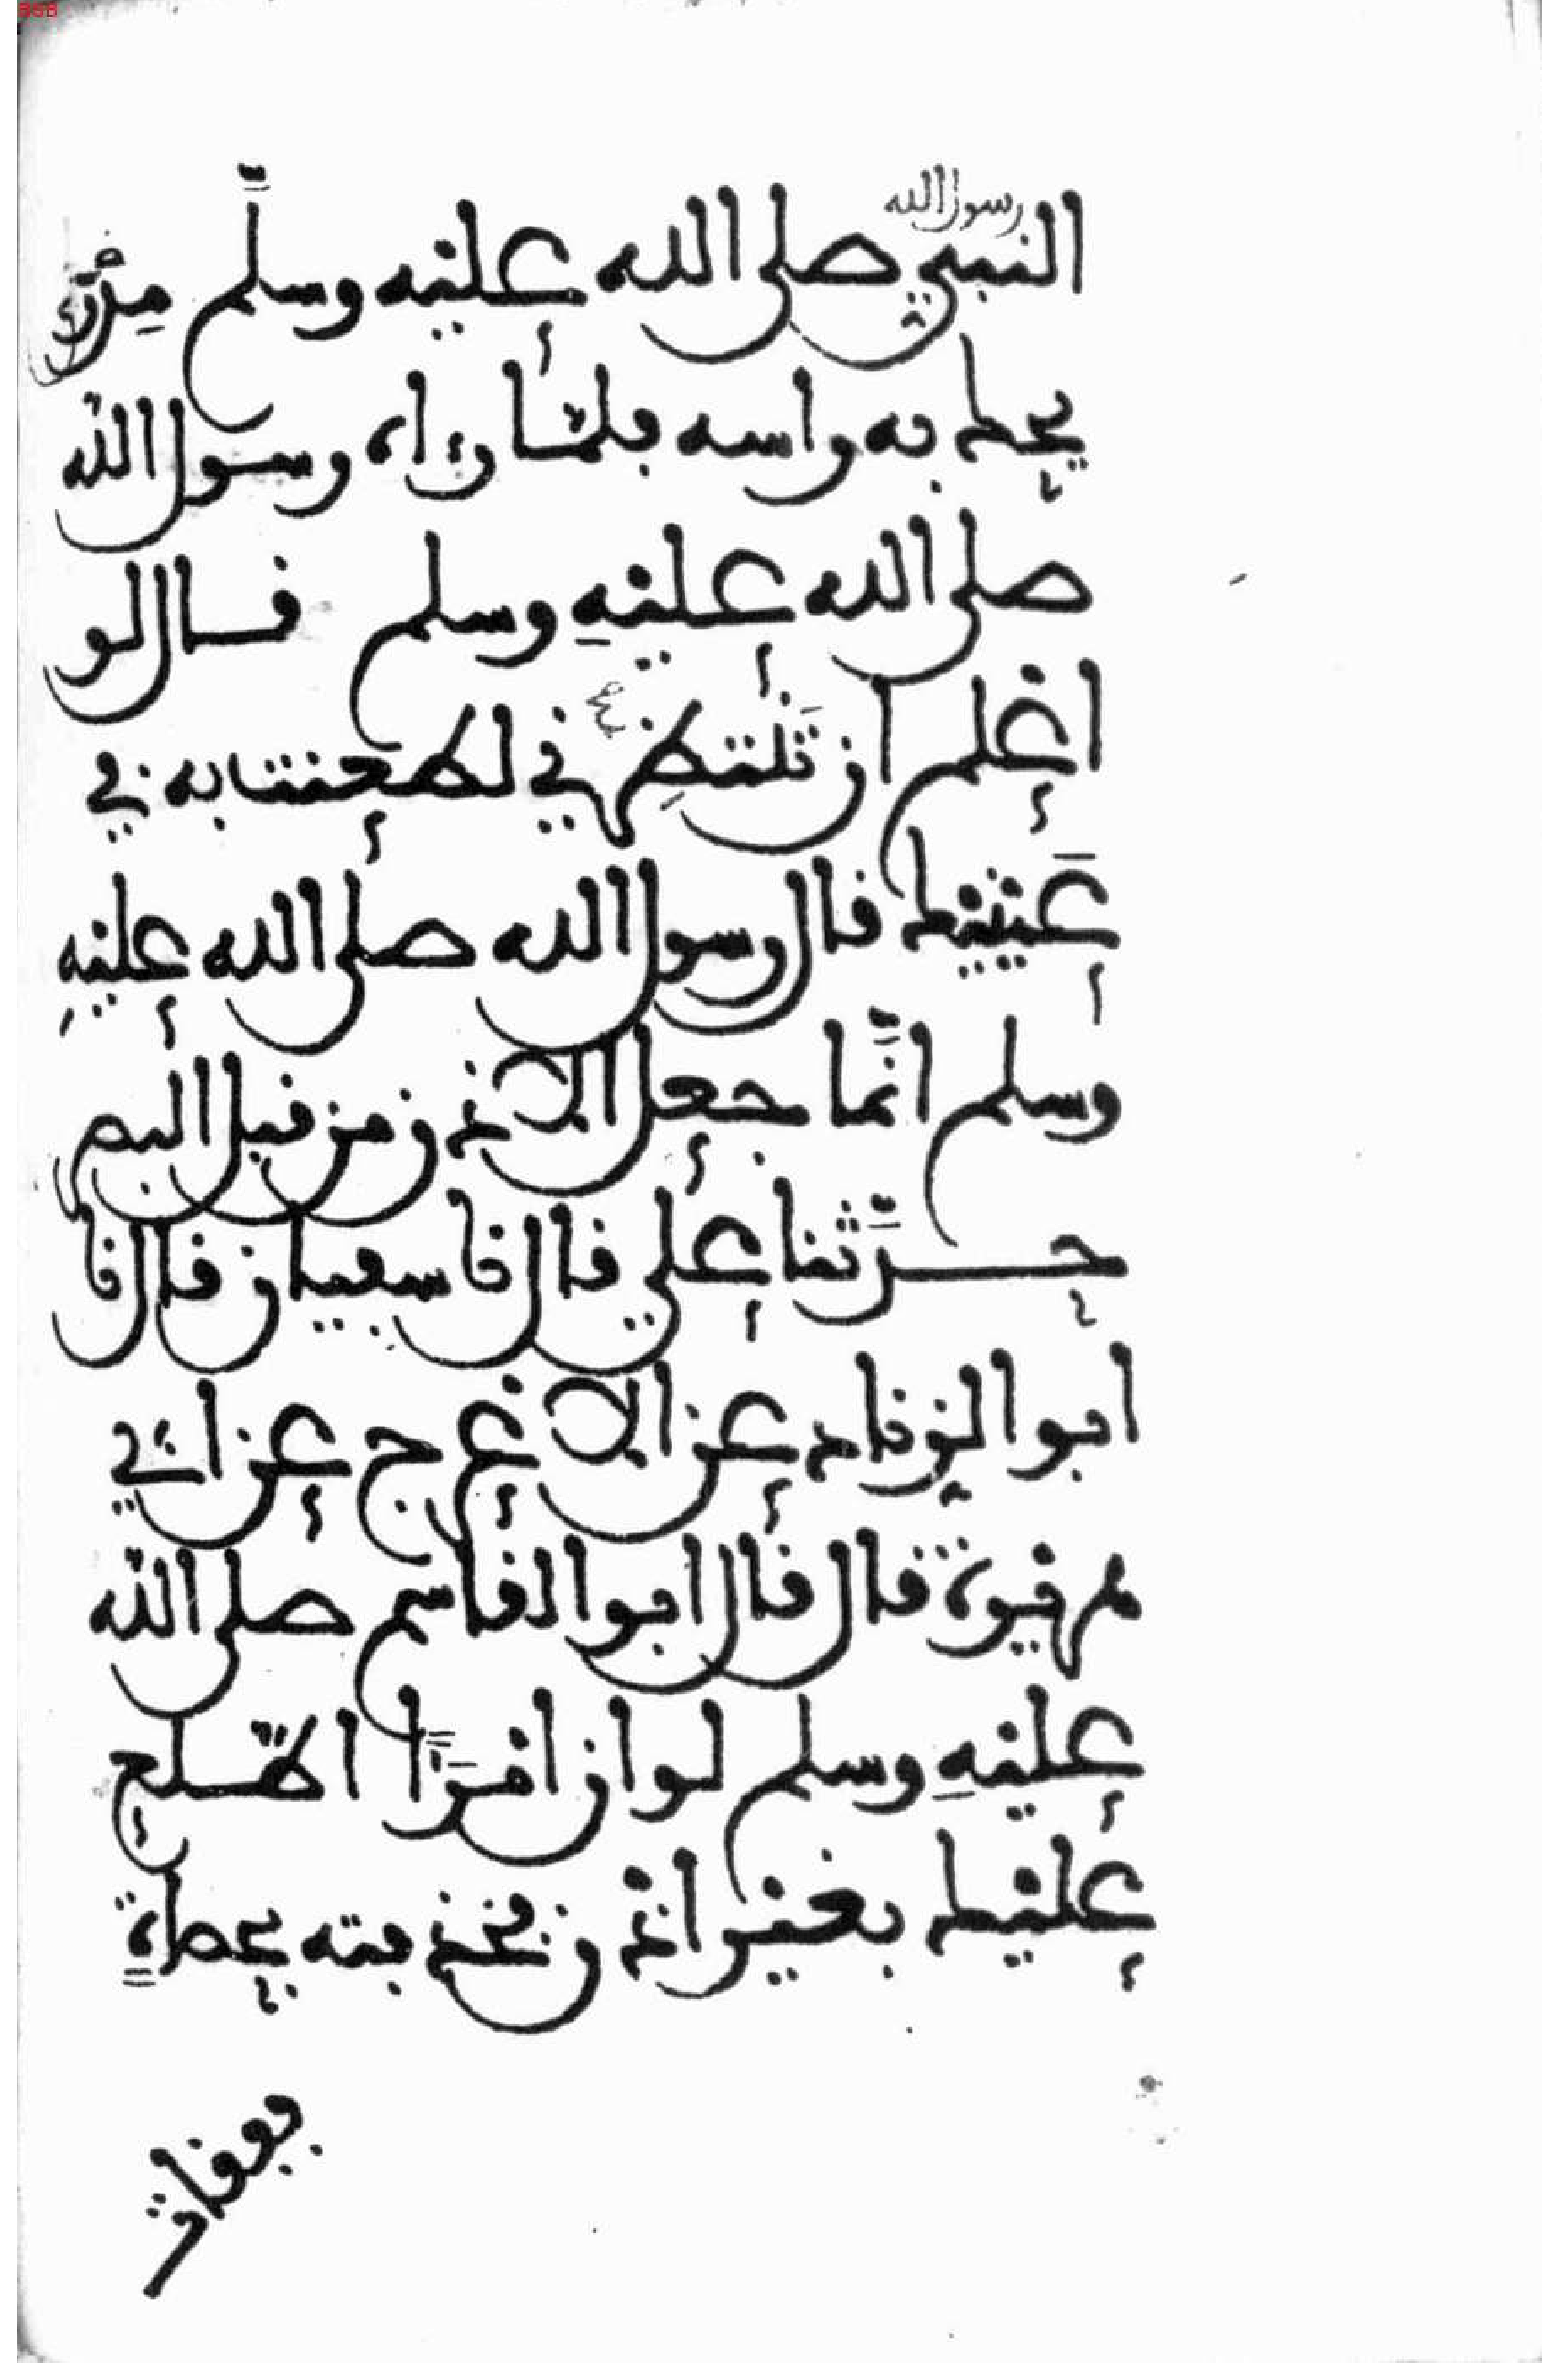 رسول الله
النبي صلى الله عليه وسلم مدرى
يحك به راسه فلما رءاه رسول الله
صلى الله عليه وسلم قال لو
اعلم ان تنتظرني لطعنت به في
عينيك قال رسول الله صلى الله عليه
وسلم انما جعل الاذن من قبل البصر
حدثنا علي قال نا سفيان قال نا
ابوا الزناد عن الاعرج عن ابي
هريرة قال قال ابوا القاسم صلى الله
عليه وسلم لو ان امرا اطلع
عليك بغير اذن فخذفته بحصاة
ففقات